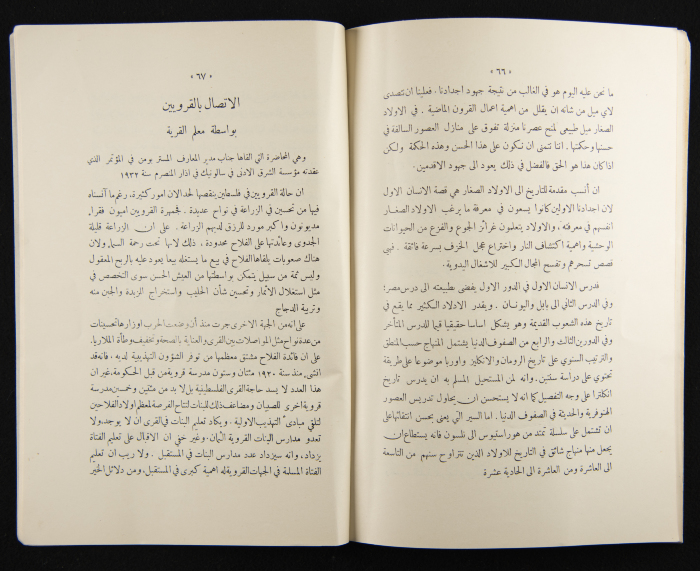 «٦٦»
ما نحن عليه اليوم هو في الغالب من نتيجة جهود اجدادنا، فعلينا ان نتصدى
لاي ميل من شأنه ان يقلل من اهمية اعمال القرون الماضية . في الاولاد
الصغار ميل طبيعي لمنح عصرنا منزلة تفوق على منازل العصور السالفة في
حسنها وحكمتها. اننا نتمنى ان نكون على هذا الحسن وهذه الحكمة ولكن
اذا كان هذا هو الحق فالفضل في ذلك يعود الى جهود الاقدمين.
ان أنسب مقدمة للتاريخ الى الاولاد الصغار هي قصة الانسان الاول
لان اجدادنا الاولين كانوا يسعون في معرفة ما يرغب الاولاد الصغار
انفسهم في معرفته، والاولاد يتعلمون غرائز الجوع والفزع من الحيوانات
الوحشية واهمية اكتشاف النار واختراع عجل الخزف بسرعة فائقة . فهي
قصص تسحرهم وتفسح المجال الكبير للاشغال اليدوية.
فدرس الانسان الاول في الدور الاول يفضي بطبيعته الى درس مصر؛
وفي الدرس الثاني الى بابل واليونان . ويقدر الاولاد الكثير مما يقع في
تاريخ هذه الشعوب القديمة وهو يشكل اساسا حقيقيا قيما للدرس المتأخر
وفي الدورين الثالث والرابع من الصفوف الدنيا يشتمل المنهاج حسب المنطق
والترتيب السنوي على تاريخ الرومان والانكليز واوربا موضوعا على طريقة
تحتوي على دراسة سنتين. وانه لمن المستحيل المسلم به ان يدرس تاريخ
انكلترا على وجه التفصيل كما انه لا يستحسن ان يحاول تدريس العصور
الهنوفرية والحديثة في الصفوف الدنيا . اما السير التي يعنى بحسن انتقائها على
ان تشتمل على سلسلة تمتد من هوراسيوس الى نلسون فانه يستطاع ان
يجعل منها منهاج شائق في التاريخ للاولاد الذين تتراوح سنهم من التاسعة
الى العاشرة ومن العاشرة الى الحادية عشرة
«٦٧»
الاتصال بالقرويين
بواسطة معلم القرية
وهي المحاضرة التي القاها جناب مدير المعارف المستر بومن في المؤتمر الذي
عقدته مؤسسة الشرق الادنى في سالونيك في اذار المنصرم سنة ١٩٣٢
ان حالة القرويين في فلسطين ينقصها لحد الان امور كثيرة، رغم ما آنسناه
فيها من تحسين في الزراعة في نواح عديدة . فجمهرة القرويين اميون فقراء
مديونون واكبر مورد للرزق لديهم الزراعة . على ان الزراعة قليلة
الجدوى وعائدتها على الفلاح محدودة ، ذلك لانها تحت رحمة السماء ولان
هناك صعوبات يلقاها الفلاح في بيع ما يستغله بيعا يعود عليه بالربح المعقول
وليس ثمة من سبيل يتمكن بواسطتها من العيش الحسن سوى التخصص في
مثل استغلال الاثمار وتحسين شأن الحليب واستخراج الزبدة والجبن منه
وتربية الدجاج
على انه من الجهة الاخرى جرت منذ أن وضعت الحرب اوزارها تحسينات
من عدة نواح مثل المواصلات بين القرى والعناية بالصحة وتخفيف وطأة الملاريا.
على ان فائدة الفلاح مشتق معظمها من توفر الشؤون التهذيبية لديه . فانه قد
انشئ منذ سنة ١٩٢٠ مئتان وستون مدرسة قروية من قبل الحكومة، غير ان
هذا العدد لا يسد حاجة القرى الفلسطينية بل لا بد من مئتين وخمسين مدرسة
قروية اخرى للصبيان ومضاعف ذلك للبنات لتتاح الفرصة لمعظم اولاد الفلاحين
لتلقي مبادىء التهذيب الاولية . ويكاد تعليم البنات في القرى ان لا يوجد، ولا
تعدو مدارس البنات القروية الثمان، وغير خفي ان الاقبال على تعليم الفتاة
يزداد، وانه سيزداد عدد مدارس البنات في المستقبل . ولا ريب ان تعليم
الفتاة المسلمة في الجهات القروية له اهمية كبرى في المستقبل، ومن دلائل الخير